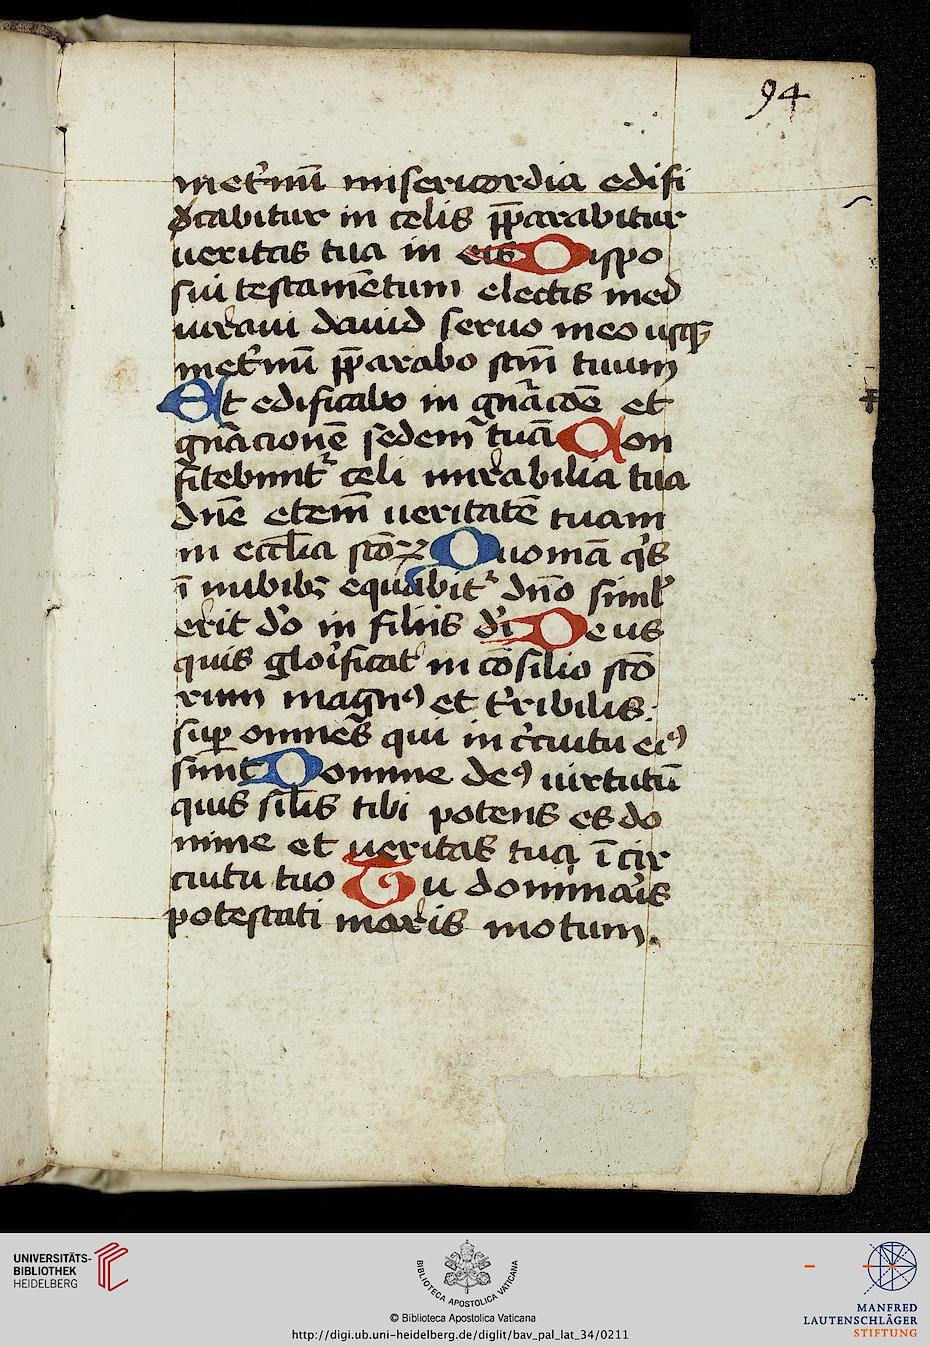 94
inet'nū misericordia edifi
cabitur in celis pp̄arabitur
ueritas tua in eis Dispo
sui testamētum electis meis
iuraui dauid seruo meo usq3
inet'nū pp̄arabo sem̄ tuum
Et edificabo in gnāc̄oē et
gnācionē sedem tuā Con
fitebunt͛ celi mirabilia tua
dn̄e etem̄ ueritatē tuam
in eccl̄ia sc̄oꝝ Quoniā q͛s
ī nubibꝫ equabit͛ dn̄o simil'
erit d'o in filiis d'i Deus
quis glo'ificat' in cōsilio sc̄o
rum magnꝰ et t'ribilis
sup omnes qui in c'cuitu eiꝰ
sunt Domine deꝰ uirtutū
quis sil̄is tibi potens es do
mine et ueritas tua ī cir
cuitu tuo Tu dominaris
potestati maris motum.
UNIVERSITÄTS-
BIBLIOTHEK
HEIDELBERG
BIBLIOTECA APOSTOLICA VATICANA
© Biblioteca Apostolica Vaticana
http://digi.ub.uni-heidelberg.de/diglit/bav_pal_lat_34/0211
MANFRED
LAUTENSCHLÄGER
STIFTUNG